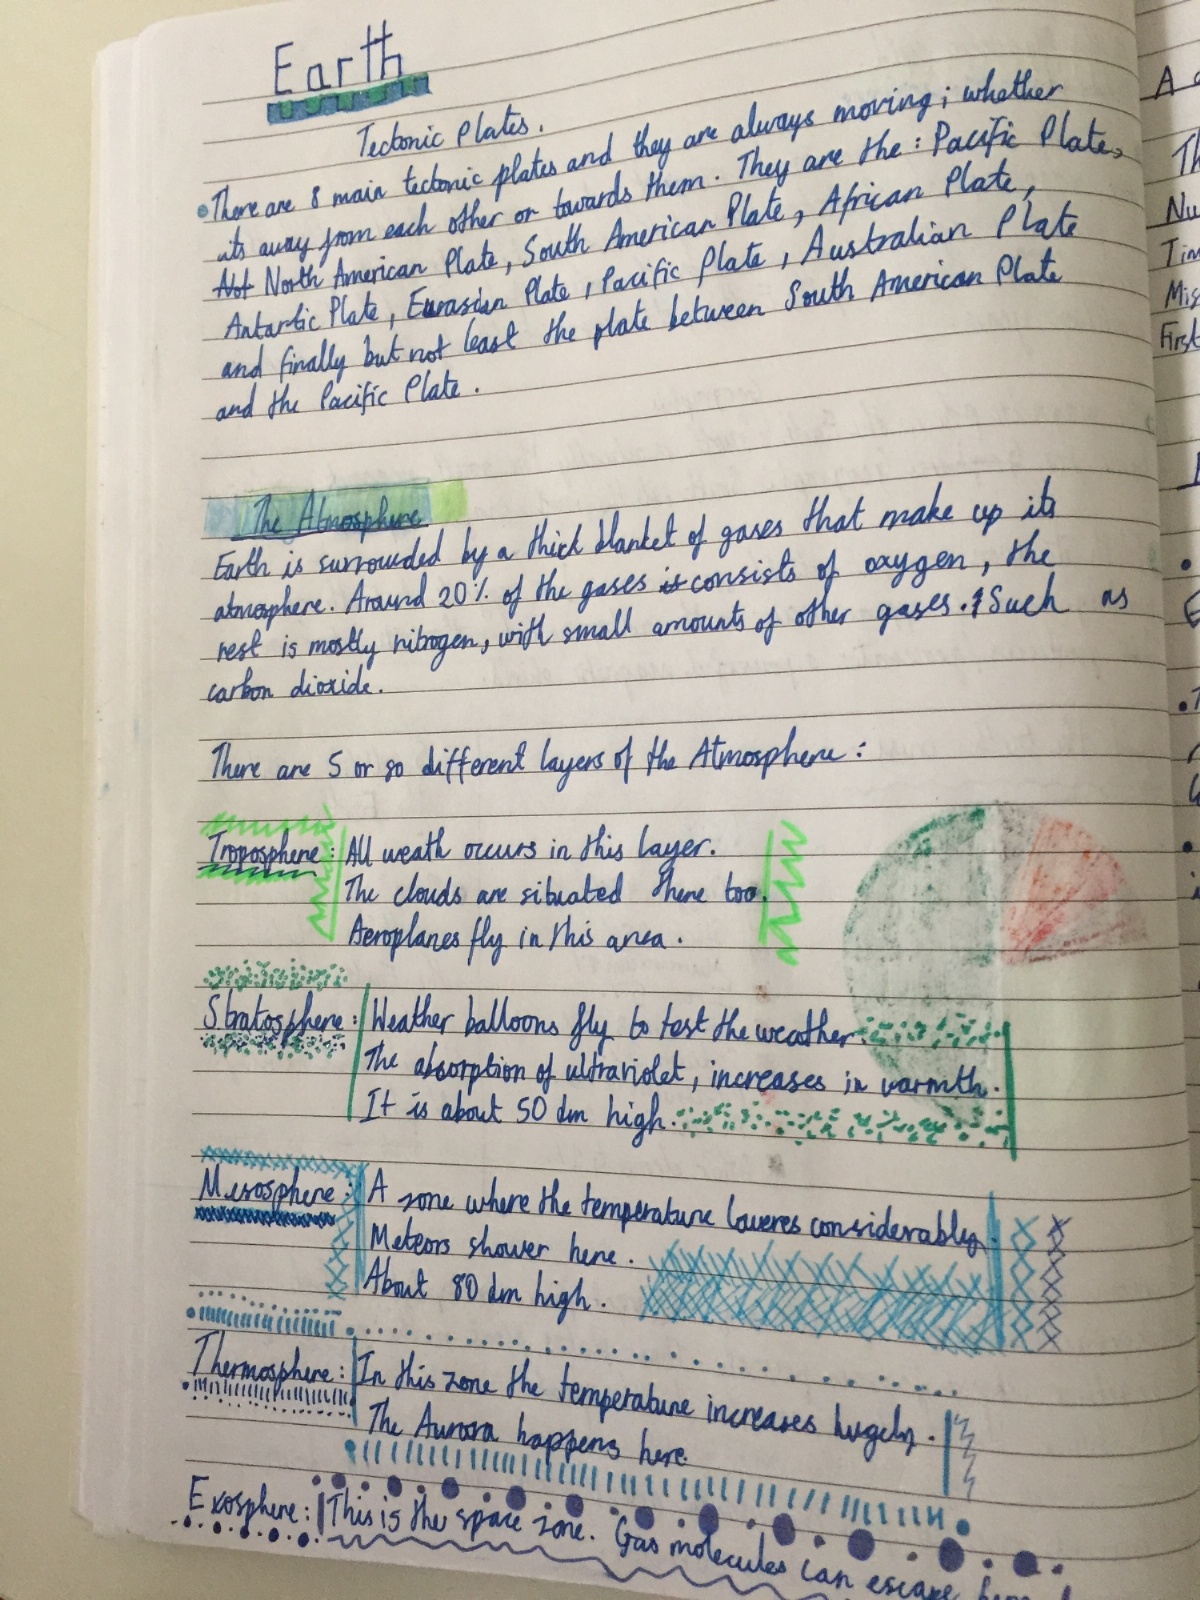 Earth
Tectonic Plates.
There are 8 main tectonic plates and they are always moving; whether
its away from each other or towards them. They are the: Pacific Plate,
Not North American Plate, South American Plate, African Plate,
Antartic Plate, Eurasian Plate, Pacific Plate, Australian Plate
and finally but not least the plate between South American Plate
and the Pacific Plate.
The Atmosphere
Earth is surrounded by a thick blanket of gases that make up its
atmosphere. Around 20% of the gases is consists of oxygen, the
rest is mostly nitrogen, with small amounts of other gases. Such as
carbon dioxide.
There are 5 or so different layers of the Atmosphere:
Troposphere: All weath occurs in this layer.
The clouds are situated there too.
Aeroplanes fly in this area.
Stratosphere: Weather balloons fly to test the weather.
The absorption of ultraviolet, increases in warmth.
It is about 50 dm high.
Mesosphere: A zone where the temperature loweres considerably.
Meteors shower here.
About 80 dm high.
Thermosphere: In this zone the temperature increases hugely.
The Aurora happens here.
Exosphere: This is the space zone. Gas molecules can escape here
A
Th
Nu
Tim
Mis
First